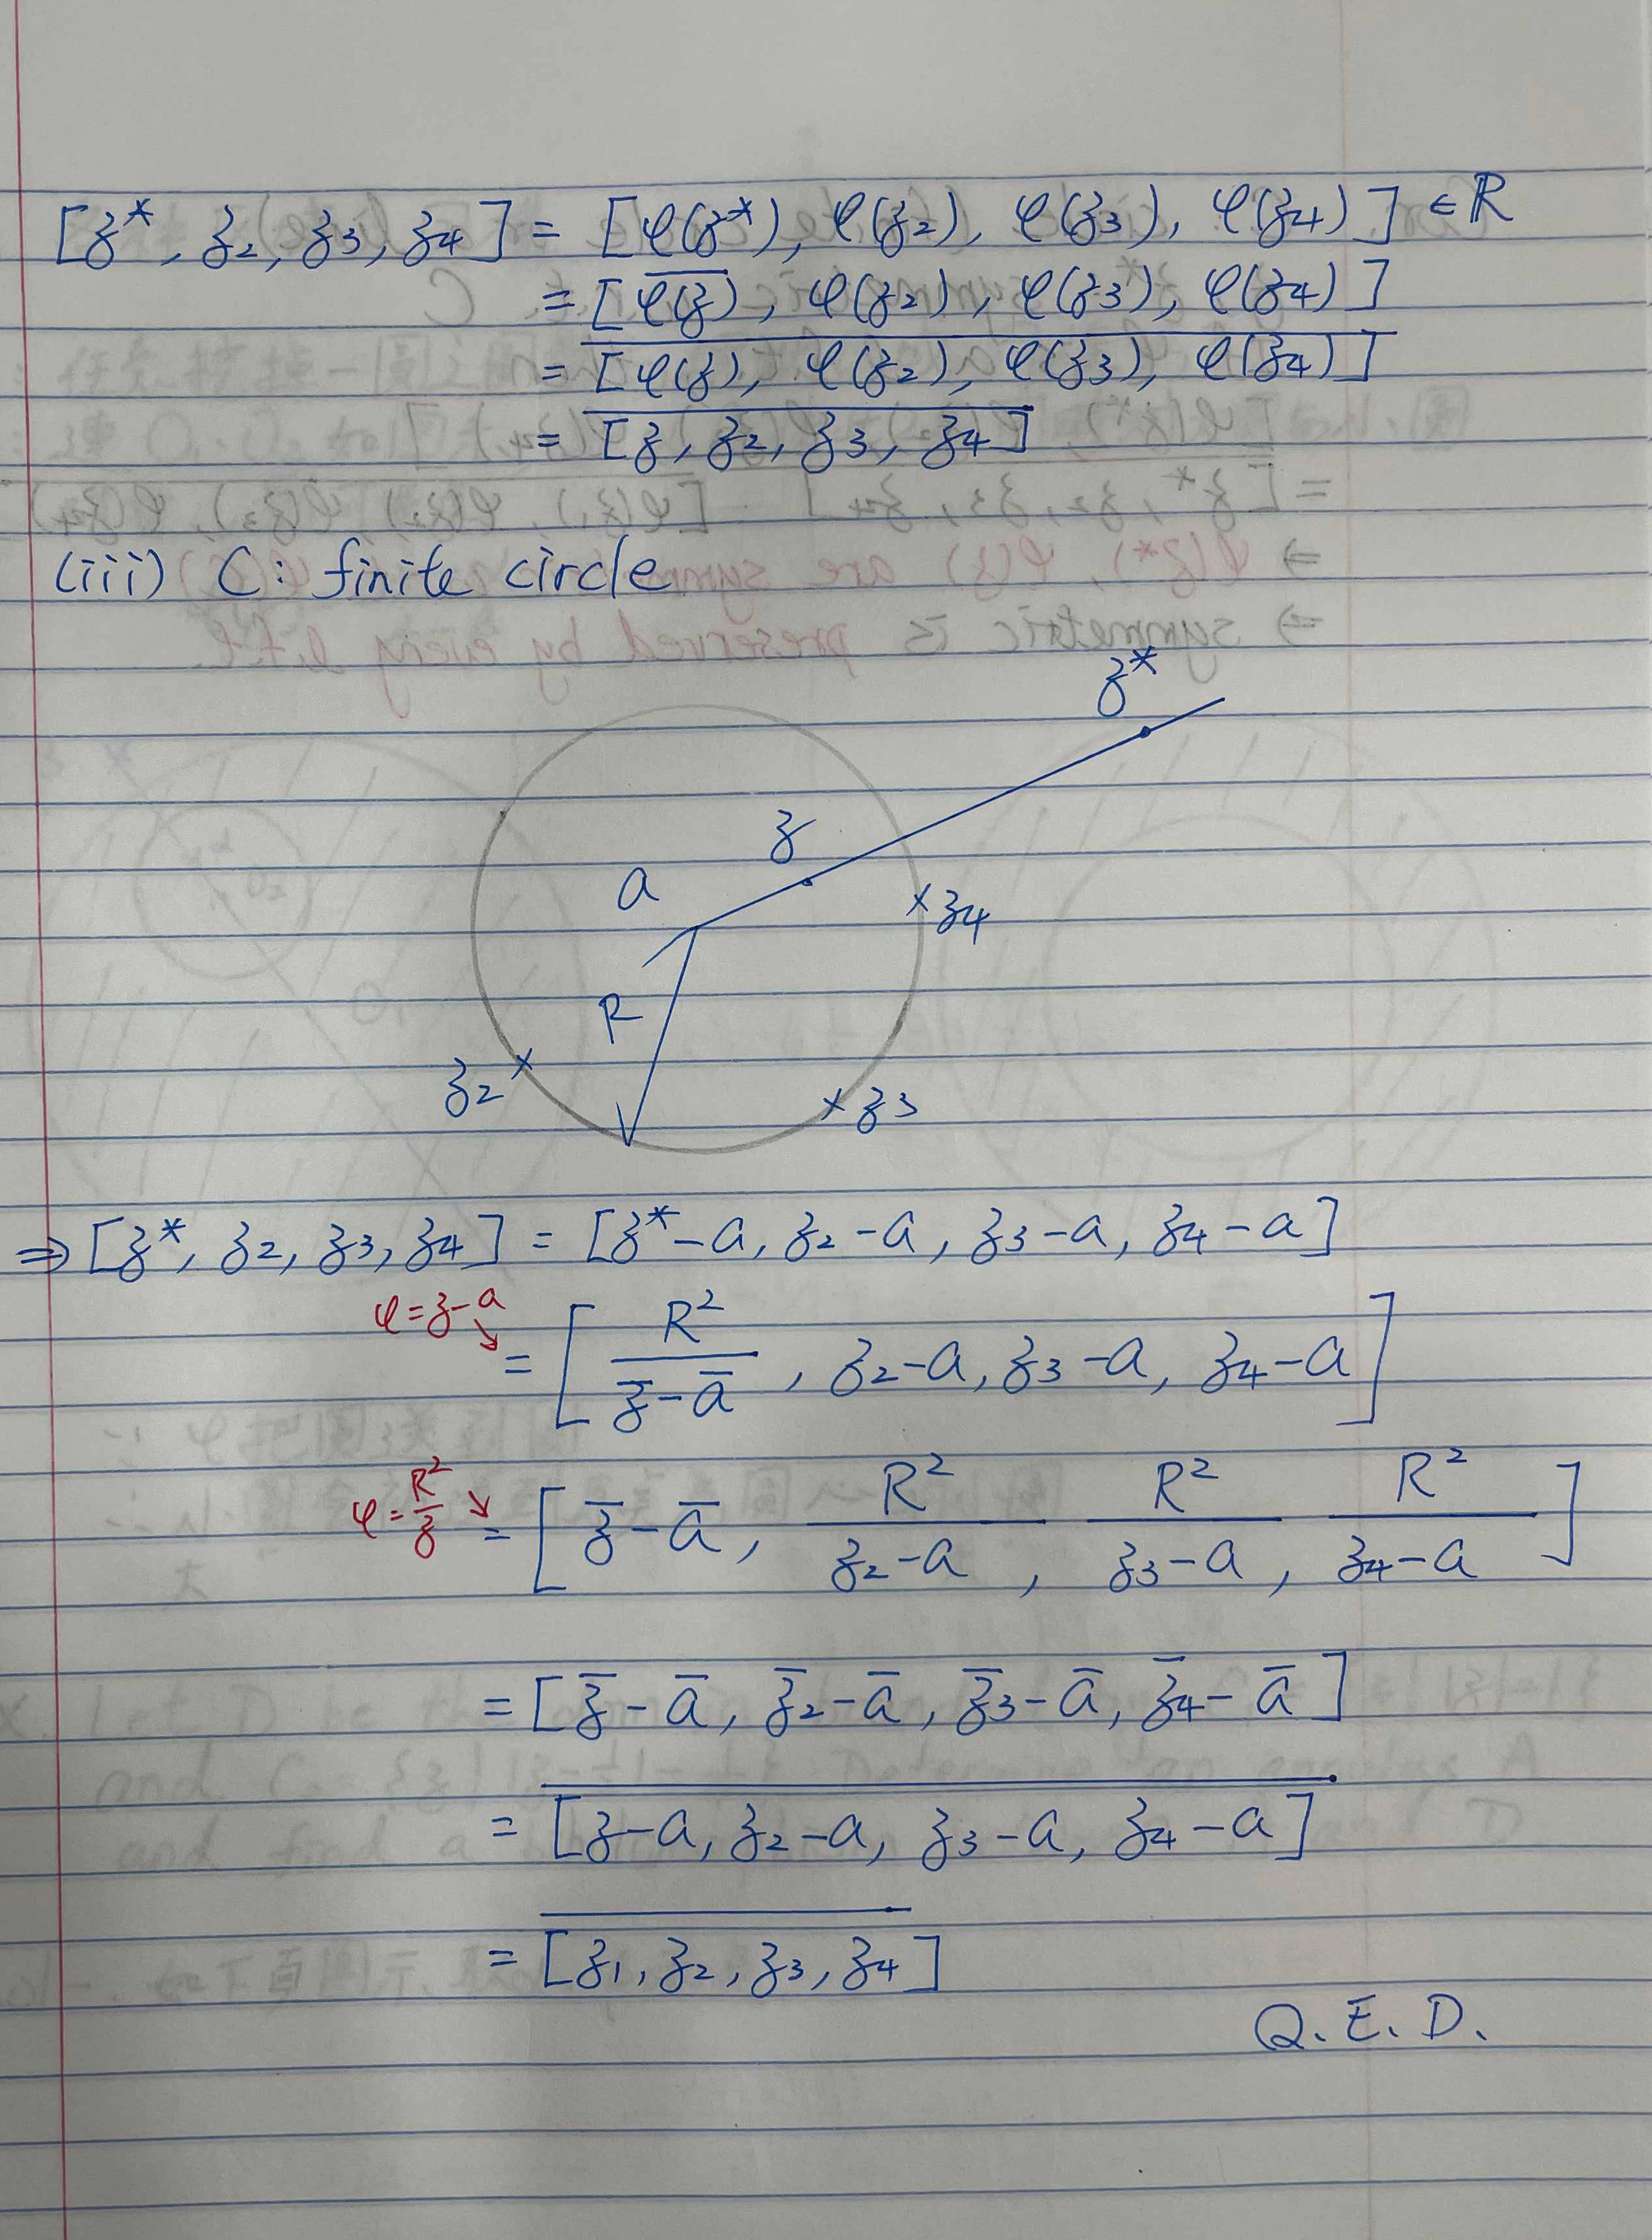 [z*, z₂, z₃, z₄] = [φ(z*), φ(z₂), φ(z₃), φ(z₄)] ∈ ℝ
= [\overline{φ(z)}, φ(z₂), φ(z₃), φ(z₄)]
= \overline{[φ(z), φ(z₂), φ(z₃), φ(z₄)]}
= \overline{[z, z₂, z₃, z₄]}
(iii) C: finite circle
z*
z
a
z₄
R
z₂
z₃
⇒ [z*, z₂, z₃, z₄] = [z*-a, z₂-a, z₃-a, z₄-a]
φ=z-a
= [\frac{R²}{\overline{z}-\overline{a}}, z₂-a, z₃-a, z₄-a]
φ=\frac{R²}{z} = [\overline{z}-\overline{a}, \frac{R²}{z₂-a}, \frac{R²}{z₃-a}, \frac{R²}{z₄-a}]
= [\overline{z}-\overline{a}, \overline{z}₂-\overline{a}, \overline{z}₃-\overline{a}, \overline{z}₄-\overline{a}]
= \overline{[z-a, z₂-a, z₃-a, z₄-a]}
= \overline{[z₁, z₂, z₃, z₄]}
Q.E.D.